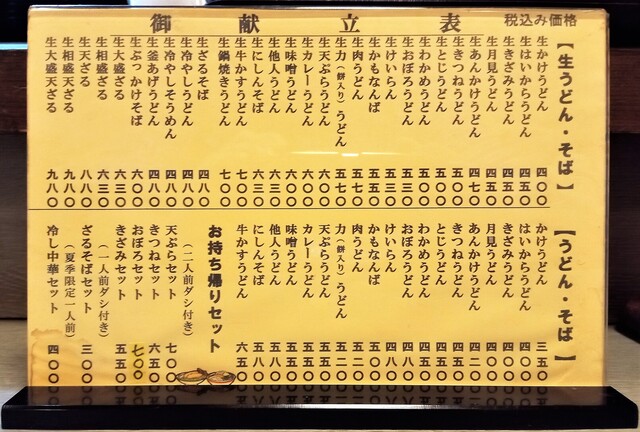 御献立表
税込み価格
【生うどん・そば】
生かけうどん 四〇〇
生はいからうどん 四五〇
生きざみうどん 四五〇
生月見うどん 四五〇
生あんかけうどん 四七〇
生きつねうどん 五〇〇
生とじうどん 五〇〇
生わかめうどん 五〇〇
生おぼろうどん 五三〇
生けいらん 五三〇
生かもなんば 五五〇
生肉うどん 五七〇
生力(餅入り)うどん 五七〇
生天ぷらうどん 六〇〇
生カレーうどん 六〇〇
生味噌うどん 六〇〇
生他人うどん 六三〇
生にしんそば 六三〇
生牛かすうどん 七〇〇
生鍋焼きうどん 七〇〇
生ざるそば 四八〇
生冷やしうどん 四八〇
生冷やしそうめん 四八〇
生釜あげうどん 四八〇
生ぶっかけそば 六〇〇
生大盛ざる 六三〇
生相盛ざる 六三〇
生天ざる 八八〇
生相盛天ざる 九八〇
生大盛天ざる 九八〇
【うどん・そば】
かけうどん 三五〇
はいからうどん 四〇〇
きざみうどん 四〇〇
月見うどん 四〇〇
あんかけうどん 四二〇
きつねうどん 四五〇
とじうどん 四五〇
わかめうどん 四五〇
おぼろうどん 四八〇
けいらん 四八〇
かもなんば 五〇〇
肉うどん 五二〇
力(餅入り)うどん 五二〇
天ぷらうどん 五五〇
カレーうどん 五五〇
味噌うどん 五五〇
他人うどん 五八〇
にしんそば 五八〇
牛かすうどん 六五〇
お持ち帰りセット
(二人前ダシ付き)
天ぷらセット 七〇〇
きつねセット 六五〇
おぼろセット 七〇〇
きざみセット 五五〇
(一人前ダシ付き)
ざるそばセット 三〇〇
(夏季限定一人前)
冷し中華セット 四〇〇